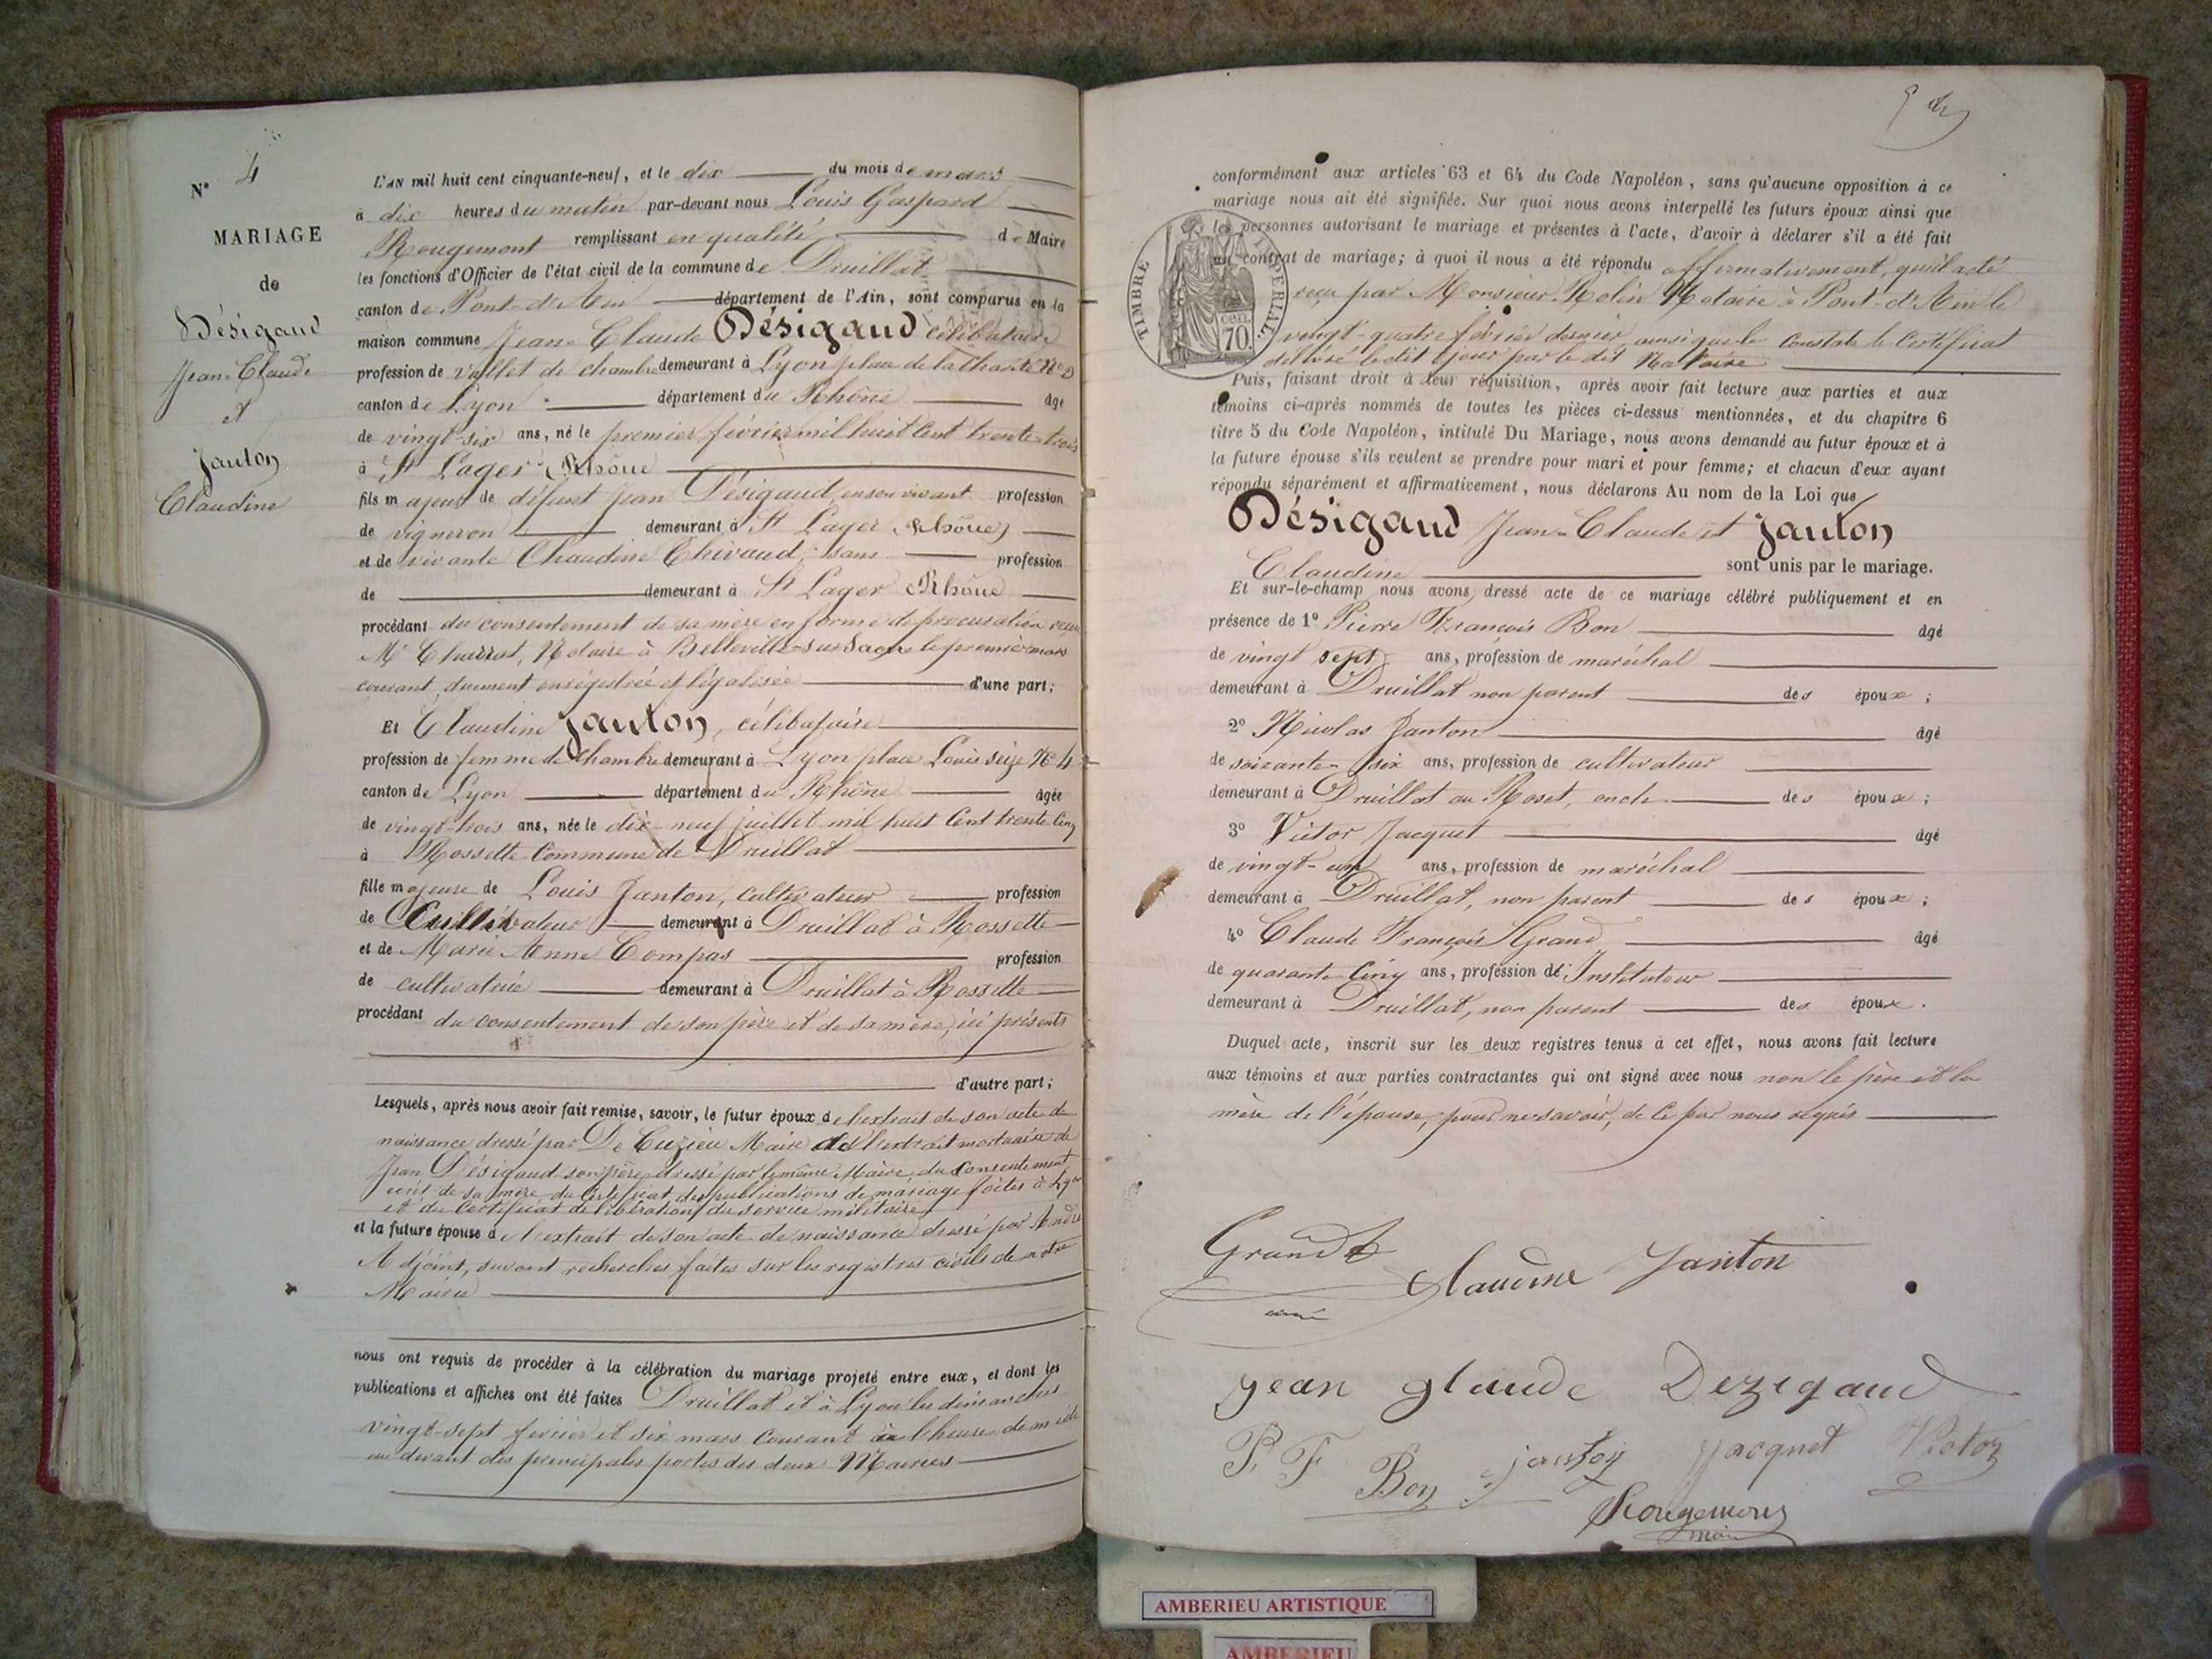 N° 4
MARIAGE
de
Désigaud
Jean-Claude
et
Janton
Claudine
L'AN mil huit cent cinquante-neuf, et le dix du mois de mars
à dix heures du matin par-devant nous Louis Gaspard
Rougemont remplissant en qualité de Maire
les fonctions d'Officier de l'état civil de la commune de Druillat
canton de Pont-d'Ain département de l'Ain, sont comparus en la
maison commune Jean-Claude Désigaud célibataire
profession de vallet de chambre demeurant à Lyon place de la Charité N°
canton de Lyon département du Rhône âgé
de vingt-six ans, né le premier février mil huit cent trente-trois
à St Lager (Rhône
fils majeur de défunt Jean Désigaud, en son vivant profession
de vigneron demeurant à St Lager (Rhône)
et de vivante Claudine Chivaud, sans profession
de demeurant à St Lager (Rhône
procédant du consentement de sa mère en forme de procuration reçue
Me Charrat, Notaire à Belleville-sur-Saône le premier mars
courant, duement enrégistrée et légalisée d'une part;
Et Claudine Janton, célibataire
profession de femme de chambre demeurant à Lyon place Louis seize N° 4
canton de Lyon département du Rhône âgée
de vingt-trois ans, née le dix-neuf juillet mil huit cent trente cinq
à Rossette commune de Druillat
fille majeure de Louis Janton, cultivateur profession
de Cultivateur demeurant à Druillat à Rossette
et de Marie Anne Compas profession
de cultivatrice demeurant à Druillat à Rossette
procédant du consentement de son père et de sa mère, ici présents
d'autre part;
Lesquels, après nous avoir fait remise, savoir, le futur époux de l'extrait de son acte de
naissance dressé par De Cuzieu Maire de l'extrait mortuaire de
Jean Désigaud son père, dressé par le même Maire, du consentement
écrit de sa mère, du certificat des publications de mariage faites à Lyon
et du certificat de libération du service militaire
et la future épouse de l'extrait de son acte de naissance dressé par André
Adjoint, suivant recherches faites sur les registres civils de notre
Mairie
nous ont requis de procéder à la célébration du mariage projeté entre eux, et dont les
publications et affiches ont été faites Druillat et à Lyon les dimanches
vingt-sept février et six mars courant à l'heure de midi
au devant des principales portes des deux Mairies
conformément aux articles 63 et 64 du Code Napoléon, sans qu'aucune opposition à ce
mariage nous ait été signifiée. Sur quoi nous avons interpellé les futurs époux ainsi que
les personnes autorisant le mariage et présentes à l'acte, d'avoir à déclarer s'il a été fait
un contrat de mariage; à quoi il nous a été répondu affirmativement, qu'il a été
reçu par Monsieur Rolin Notaire à Pont-d'Ain le
vingt-quatre février dernier, ainsi que le constate le certificat
délivré ledit jour par le dit Notaire
TIMBRE IMPERIAL
70 cen.
Puis, faisant droit à leur réquisition, après avoir fait lecture aux parties et aux
témoins ci-après nommés de toutes les pièces ci-dessus mentionnées, et du chapitre 6
titre 5 du Code Napoléon, intitulé Du Mariage, nous avons demandé au futur époux et à
la future épouse s'ils veulent se prendre pour mari et pour femme; et chacun d'eux ayant
répondu séparément et affirmativement, nous déclarons Au nom de la Loi que
Désigaud Jean-Claude et Janton
Claudine sont unis par le mariage.
Et sur-le-champ nous avons dressé acte de ce mariage célébré publiquement et en
présence de 1° Pierre François Bon âgé
de vingt sept ans, profession de maréchal
demeurant à Druillat non parent des époux;
2° Nicolas Janton âgé
de soixante-six ans, profession de cultivateur
demeurant à Druillat au Roset, oncle des époux;
3° Victor Jacquet âgé
de vingt-un ans, profession de maréchal
demeurant à Druillat, non parent des époux;
4° Claude François Grand âgé
de quarante cinq ans, profession d'Instituteur
demeurant à Druillat, non parent des époux.
Duquel acte, inscrit sur les deux registres tenus à cet effet, nous avons fait lecture
aux témoins et aux parties contractantes qui ont signé avec nous non le père et la
mère de l'épouse, pour ne savoir, de ce par nous requis
Grand
Claudine Janton
jean glaude Dezigaud
P. F Bon janton jacquet Victor
Rougemont
maire
AMBERIEU ARTISTIQUE
AMBERIEU